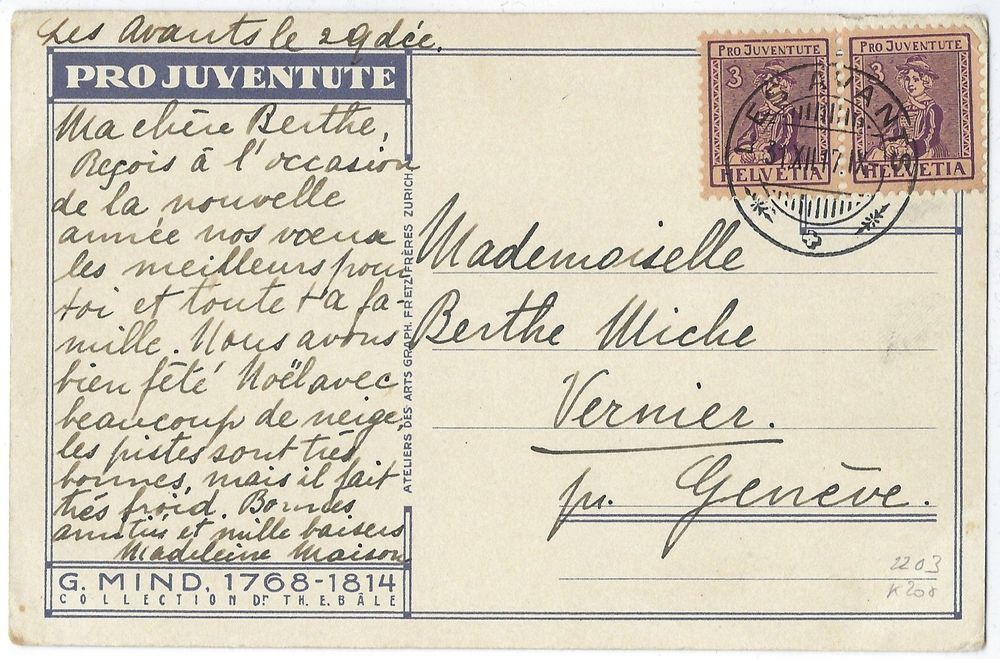 Les Avants le 29 déc.
PRO JUVENTUTE
Ma chère Berthe,
Reçois à l'occasion
de la nouvelle
année nos vœux
les meilleurs pour
toi et toute ta fa-
mille. Nous avons
bien fêté Noël avec
beaucoup de neige,
les pistes sont très
bonnes, mais il fait
très froid. Bonnes
amitiés et mille baisers
Madeleine Maison
G. MIND, 1768-1814
COLLECTION DR TH. E. BÂLE
ATELIERS DES ARTS GRAPH. FRETZ FRÈRES ZURICH
PRO JUVENTUTE
3
HELVETIA
PRO JUVENTUTE
3
HELVETIA
LES AVANTS
31.XII.17.IX
Mademoiselle
Berthe Miche
Vernier.
pr. Genève.
2203